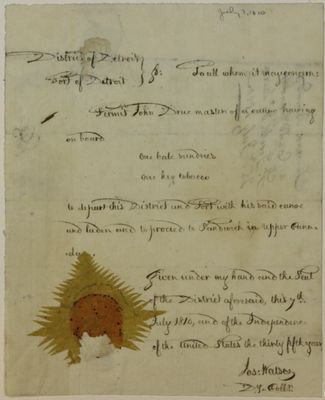 July 7, 1810
District of Detroit
Port of Detroit } ss: To all whom it may concern:
Permit John Drue master of a canoe having
on board
One bale sundries
One keg tobacco
to depart this District and Port with his said canoe
and laden and to proceed to Sandwich in upper Cana
da.
Given under my hand and the Seal
of the District aforesaid, this 7th
July 1810, and of the Independence
of the United States the thirty fifth year
Jos: Watson
D. Coll.r